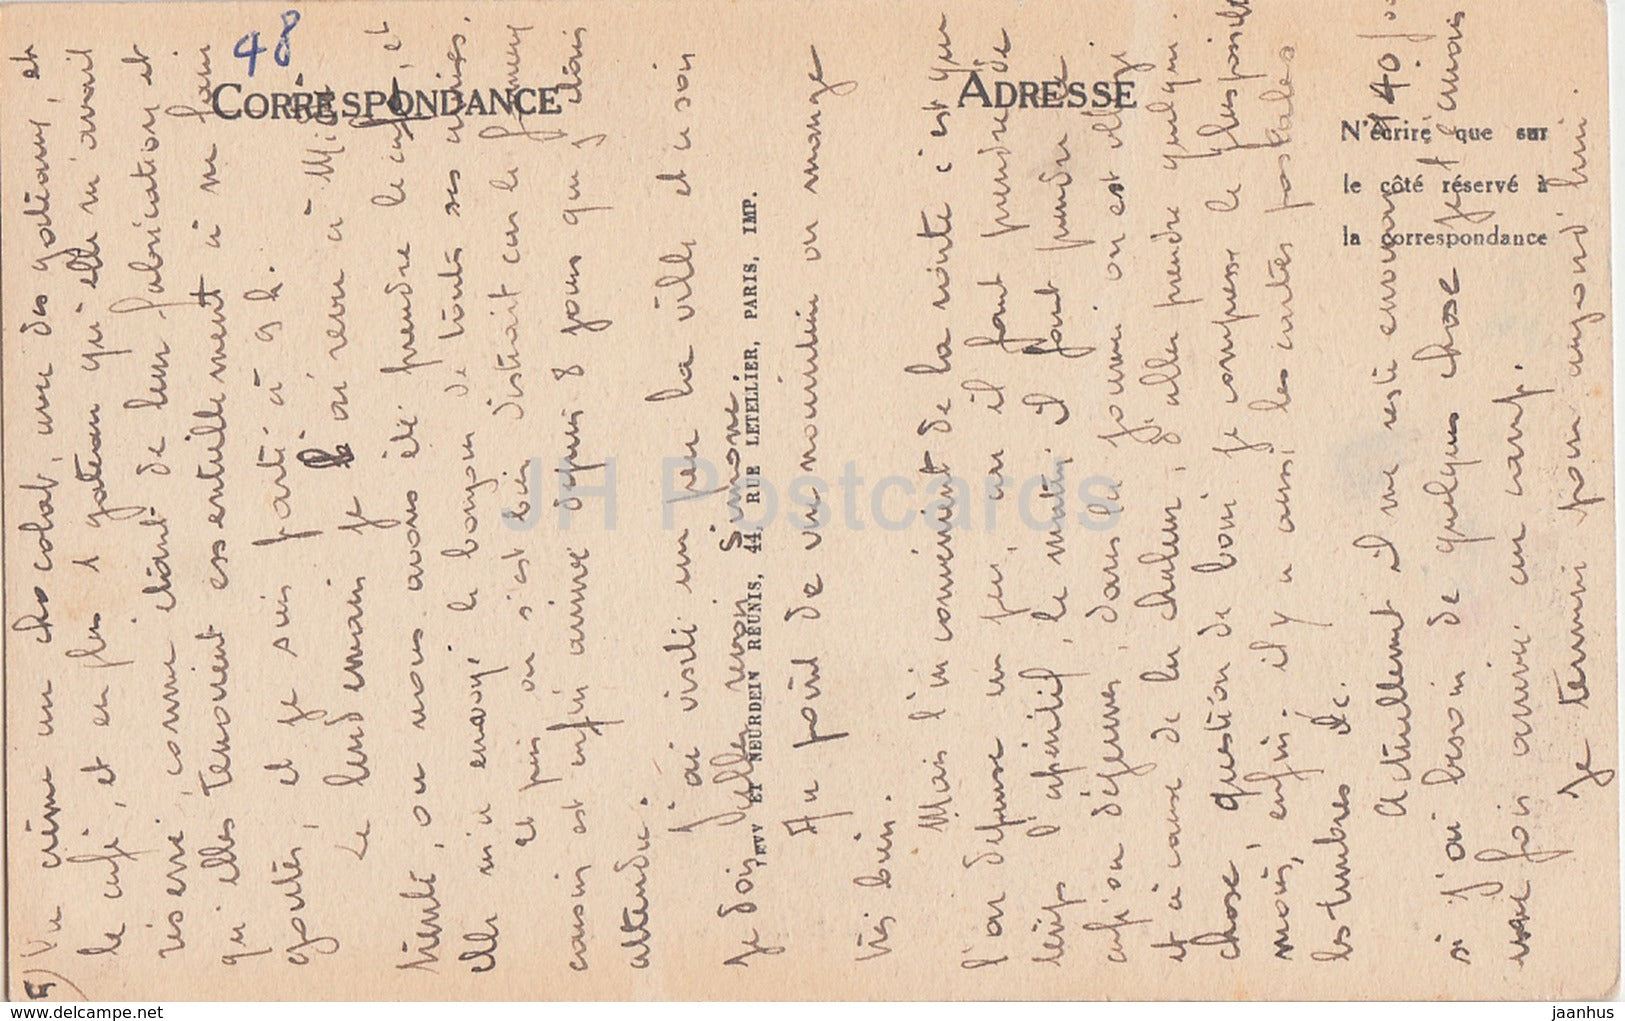 48
CORRESPONDANCE
ADRESSE
N'écrire que sur
le côté réservé à
la correspondance
LEVY ET NEURDEIN RÉUNIS, 44, RUE LETELLIER, PARIS, IMP.
JH Postcards
un chocolat, avec des gateaux, et
le café, et en plus 1 gateau qu'elle m'avait
réservé, comme étant de leur fabrication et
qu'elles tenaient essentiellement à me faire
gouter, et je suis parti à 9 h.
Le lendemain je l'ai revu à Midi
trente, ou nous avons été prendre le café, et
elle m'a envoyé le bonjour de toutes ses amies.
et puis on s'est bien distrait car le fameux
cousin est enfin arrivé depuis 8 jours qu'il était
attendu.
J'ai visité un peu la ville et ce soir
Je dois aller voir Simone.
Au point de vue nourriture on mange
très bien.
Mais l'inconvénient de la route c'est que
l'on dépense un peu, car il faut prendre de
temps l'apéritif, le matin il faut prendre le
café au déjeuner, dans la journée on est obligé
et à cause de la chaleur, d'aller prendre quelque
chose, question de boire je compresse le plus possible
mais, enfin. il y a aussi les cartes postales
les timbres etc.
Actuellement il me reste encore 140 frs
si j'ai besoin de quelque chose je t'écrirais
une fois arrivé au camp.
Je termine pour aujourd'hui.
tamyst-net.com
jaanhus